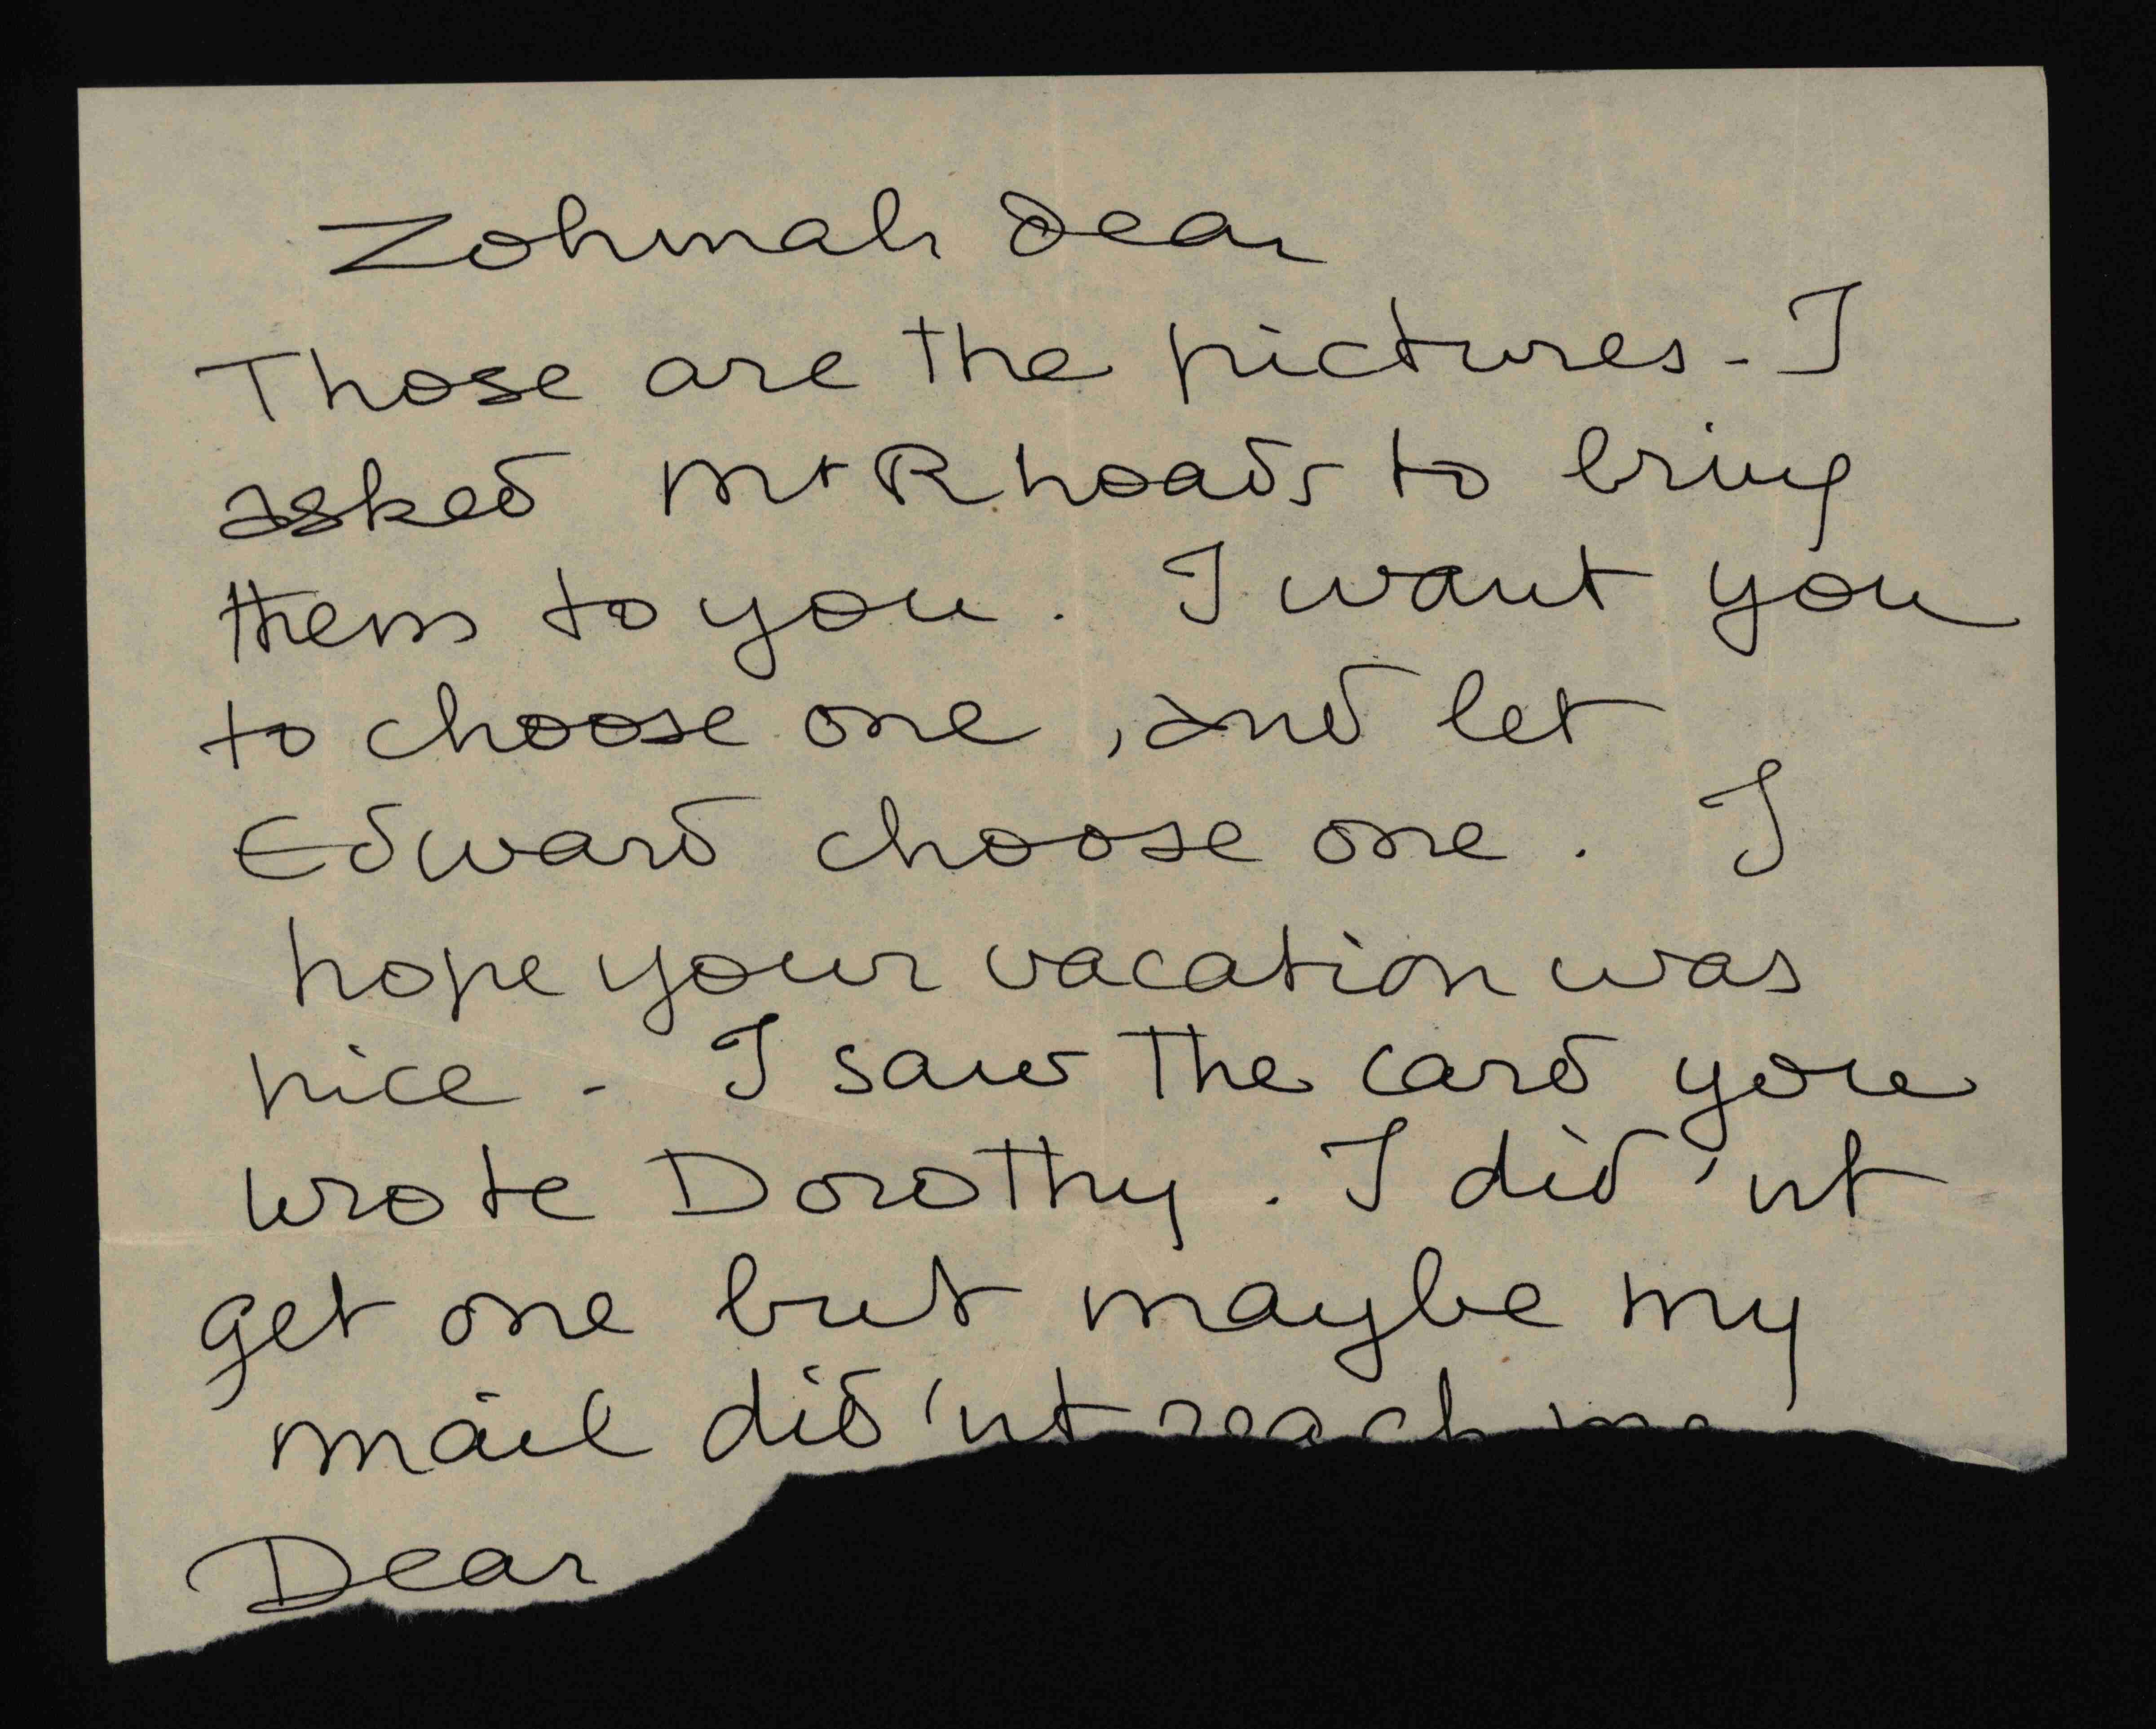 Zohmah dear
Those are the pictures - I
asked Mr Rhoads to bring
them to you. I want you
to choose one, and let
Edward choose one. I
hope your vacation was
nice - I saw the card you
wrote Dorothy. I did'nt
get one but maybe my
mail did'nt reach me
Dear